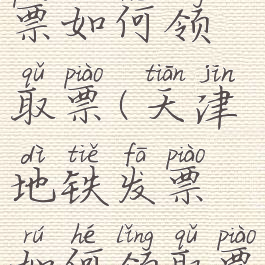 票如何领
qǔ piào tiān jīn
取票(天津
dì tiě fā piào
地铁发票
rú hé lǐng qǔ piào
如何领取票